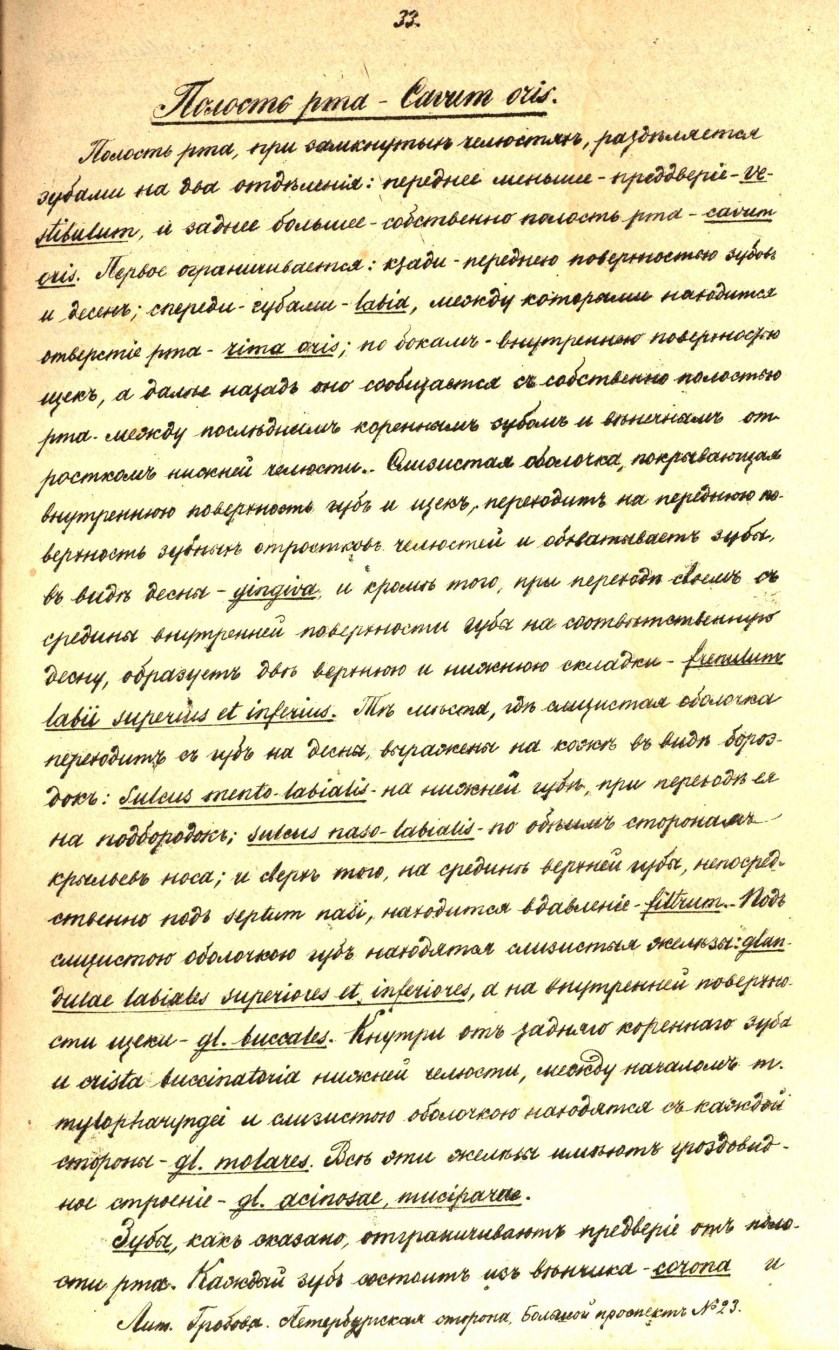 33.
Полость рта - Cavum oris.
Полость рта, при замкнутыхъ челюстяхъ, раздѣляется
зубами на два отдѣленія: переднее меньшее - преддверіе - ve-
stibulum, и заднее большее - собственно полость рта - cavum
oris. Первое ограничивается: кзади - переднею поверхностью зубовъ
и десенъ; спереди - губами - labia, между которыми находится
отверстіе рта - rima oris; по бокамъ - внутреннею поверхностью
щекъ, а далѣе назадъ оно сообщается съ собственно полостью
рта - между послѣднимъ кореннымъ зубомъ и вѣнечнымъ от-
росткомъ нижней челюсти. - Слизистая оболочка, покрывающая
внутреннюю поверхность губъ и щекъ, переходитъ на переднюю по-
верхность зубныхъ отростковъ челюстей и обхватываетъ зубы,
въ видѣ десны - gingiva, и кромѣ того, при переходѣ своемъ съ
средины внутренней поверхности губы на соотвѣтственную
десну, образуетъ двѣ верхнюю и нижнюю складки - frenulum
labii superius et inferius. Тѣ мѣста, гдѣ слизистая оболочка
переходитъ съ губъ на десна, выражены на кожѣ въ видѣ бороз-
докъ: sulcus mento-labialis - на нижней губѣ, при переходѣ ея
на подбородокъ; sulcus naso-labialis - по обѣимъ сторонамъ
крыльевъ носа; и сверхъ того, на срединѣ верхней губы, непосред-
ственно подъ septum nasi, находится вдавленіе - filtrum. - Подъ
слизистою оболочкою губъ находятся слизистыя железы: glan-
dulae labiales superiores et inferiores, а на внутренней поверхно-
сти щеки - gl. buccales. Кнутри отъ задняго кореннаго зуба
и crista buccinatoria нижней челюсти, между началомъ m.
mylopharyngei и слизистою оболочкою находятся съ каждой
стороны - gl. molares. Всѣ эти железы имѣютъ гроздовид-
ное строеніе - gl. acinosae, muciparae.
Зубы, какъ сказано, отграничиваютъ предверіе отъ поло-
сти рта. Каждый зубъ состоитъ изъ вѣнчика - corona и
Лит. Гробова. Петербургская сторона, Большой проспектъ № 23.